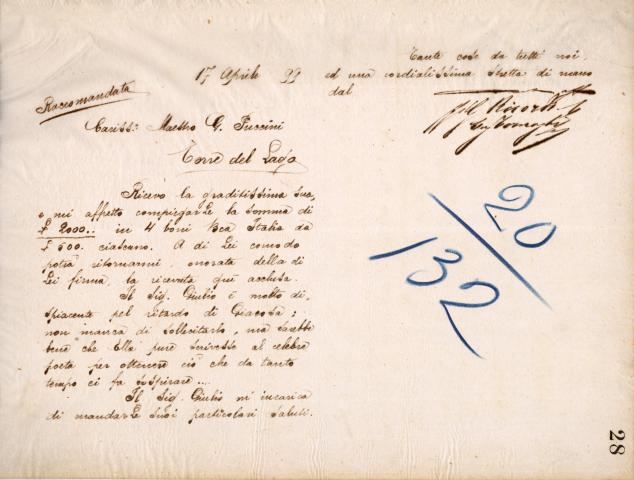 17 Aprile 99
Raccomandata
Cariss: Maestro G. Puccini
Torre del Lago
Ricevo la graditissima sua,
e mi affretto compiegarLe la somma di
£ 2000.. in 4 boni B.ca Italia da
£ 500. ciascuno. A di Lei comodo
potrà ritornarmi, onorata della di
Lei firma, la ricevuta quì acclusa.
Il Sig. Giulio è molto di,
spiacente pel ritardo di Giacosa;
non manca di sollecitarlo, ma sarebbe
bene che Ella pure scrivesse al celebre
poeta per ottenere ciò che da tanto
tempo ci fa sospirare...
Il Sig. Giulio m'incarica
di mandarLe suoi particolari saluti.
Tante cose da tutti noi.
ed una cordialissima stretta di mano
dal
Ricordi
20
132
28